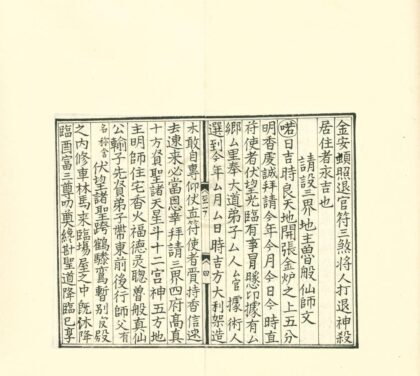 金安頓照退官符三煞將人打退神殺
居住者永吉也
請設三界地主魯般仙師文
日吉時良天地開張金炉之上五分
明香虔誠拜請今年今月今日今時直
符使者伏望光臨有事冒懇卬據有厶
鄉厶里奉大道弟子厶人厶官據術人
選到今年厶月厶日時吉方大利架造
木敢自專仰仗直符使者賫持香信遥
去速來必當恩幸拜請三界四府高真
十方賢聖諸天星斗十二宮神五方地
主明師住宅香火福德灵聰魯般真仙
公輸子先賢弟子帶東前後行師父有
名称者 伏望諸聖跨鶴驂鸞暫別宮殿
之內修車抹馬來臨場屋之中既休降
臨酉富三尊叨奠斟聖道降臨已享